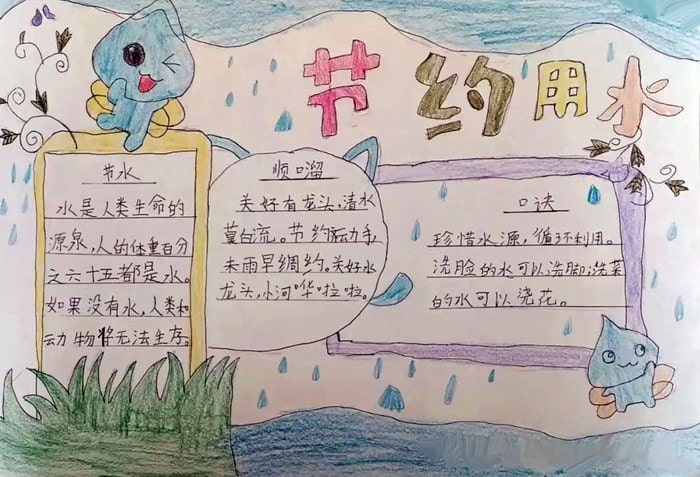 节约用水
节水
水是人类生命的
源泉,人的体重百分
之六十五都是水。
如果没有水,人类和
动物将无法生存。
顺口溜
关好有龙头,清水
莫白流。节约动手,
未雨早绸约。关好水
龙头,小河哗啦啦。
口诀
珍惜水源,循环利用。
洗脸的水可以洗脚,洗菜
的水可以浇花。